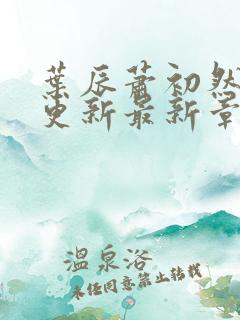 葉辰蕭初然
更新最新章
溫泉浴
未經同意禁止轉載